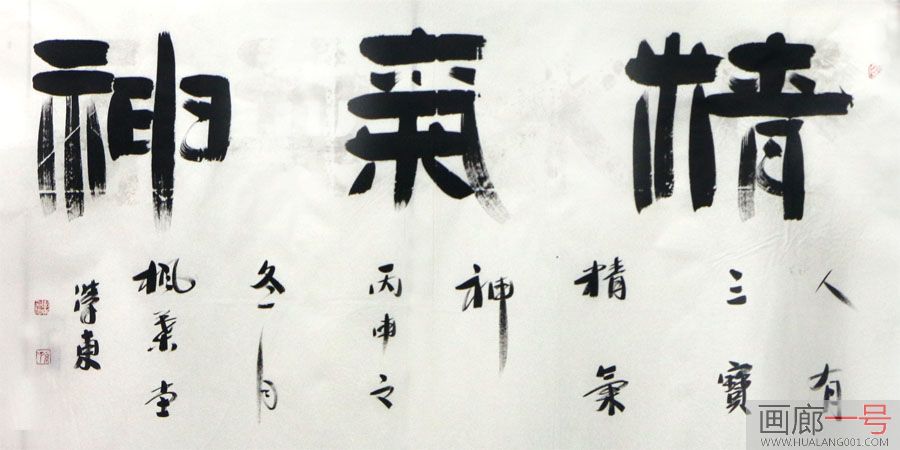 精氣神
人有
三寶
精氣
神
丙申之
冬月
楓葉堂
東
画廊一号
WWW.HUALANG001.COM